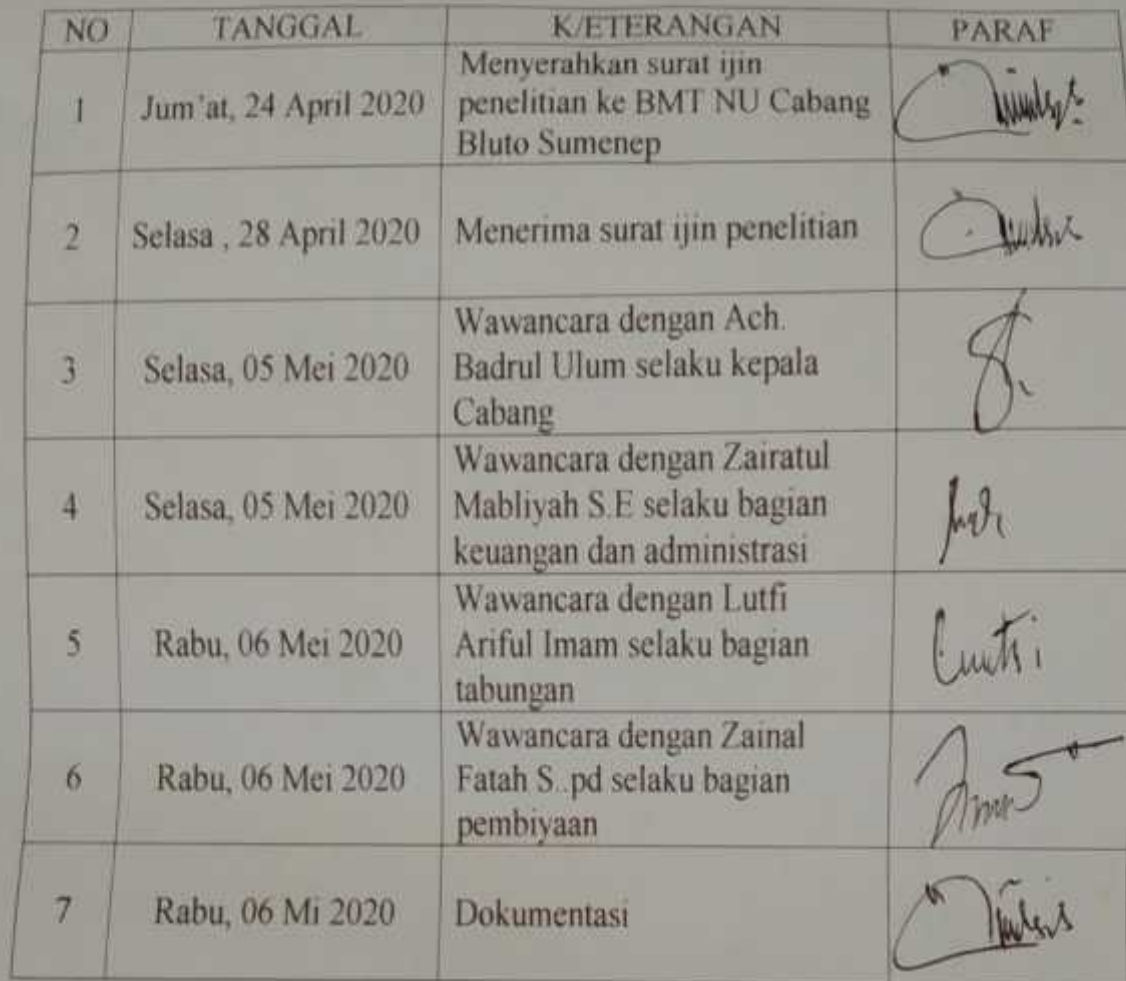 NO TANGGAL K/ETERANGAN PARAF
1 Jum'at, 24 April 2020 Menyerahkan surat ijin
penelitian ke BMT NU Cabang
Bluto Sumenep
2 Selasa , 28 April 2020 Menerima surat ijin penelitian
3 Selasa, 05 Mei 2020 Wawancara dengan Ach.
Badrul Ulum selaku kepala
Cabang
4 Selasa, 05 Mei 2020 Wawancara dengan Zairatul
Mabliyah S.E selaku bagian
keuangan dan administrasi
5 Rabu, 06 Mei 2020 Wawancara dengan Lutfi
Ariful Imam selaku bagian
tabungan
6 Rabu, 06 Mei 2020 Wawancara dengan Zainal
Fatah S..pd selaku bagian
pembiyaan
7 Rabu, 06 Mi 2020 Dokumentasi